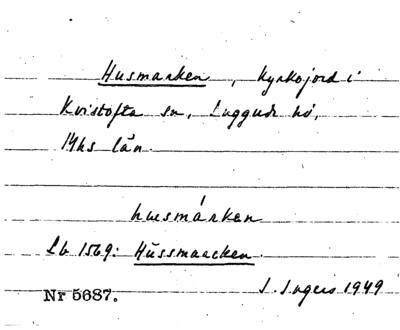 Husmarken, kyrkojord i
Kvistofta sn, Luggude hd,
Mhs län.
husmárken
Lb 1569: Hüssmaacken.
Nr 5687. S. Ingers 1949